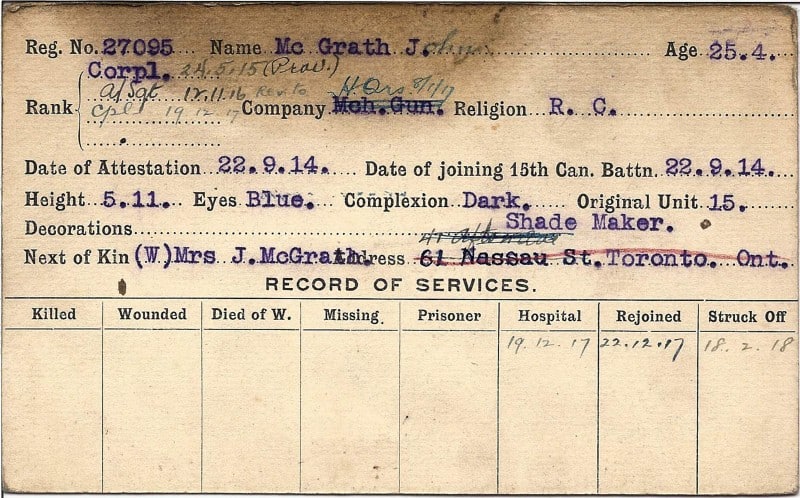 Reg. No. 27095 Name Mc Grath J. ohn Age 25.4.
Corpl. 24.5.15 (Prov.)
a/Sgt 12.11.16 Rev. to H. Qrs. 8/1/17
Rank Cpl 19 12 17 Company Mch. Gun. Religion R. C.
Date of Attestation 22.9.14. Date of joining 15th Can. Battn. 22.9.14.
Height 5.11. Eyes Blue. Complexion Dark. Original Unit 15.
Decorations Shade Maker.
Next of Kin (W) Mrs J. McGrath. Address 61 Nassau St. Toronto. Ont.
RECORD OF SERVICES.
Killed Wounded Died of W. Missing. Prisoner Hospital Rejoined Struck Off
19.12.17 22.12.17 18.2.18